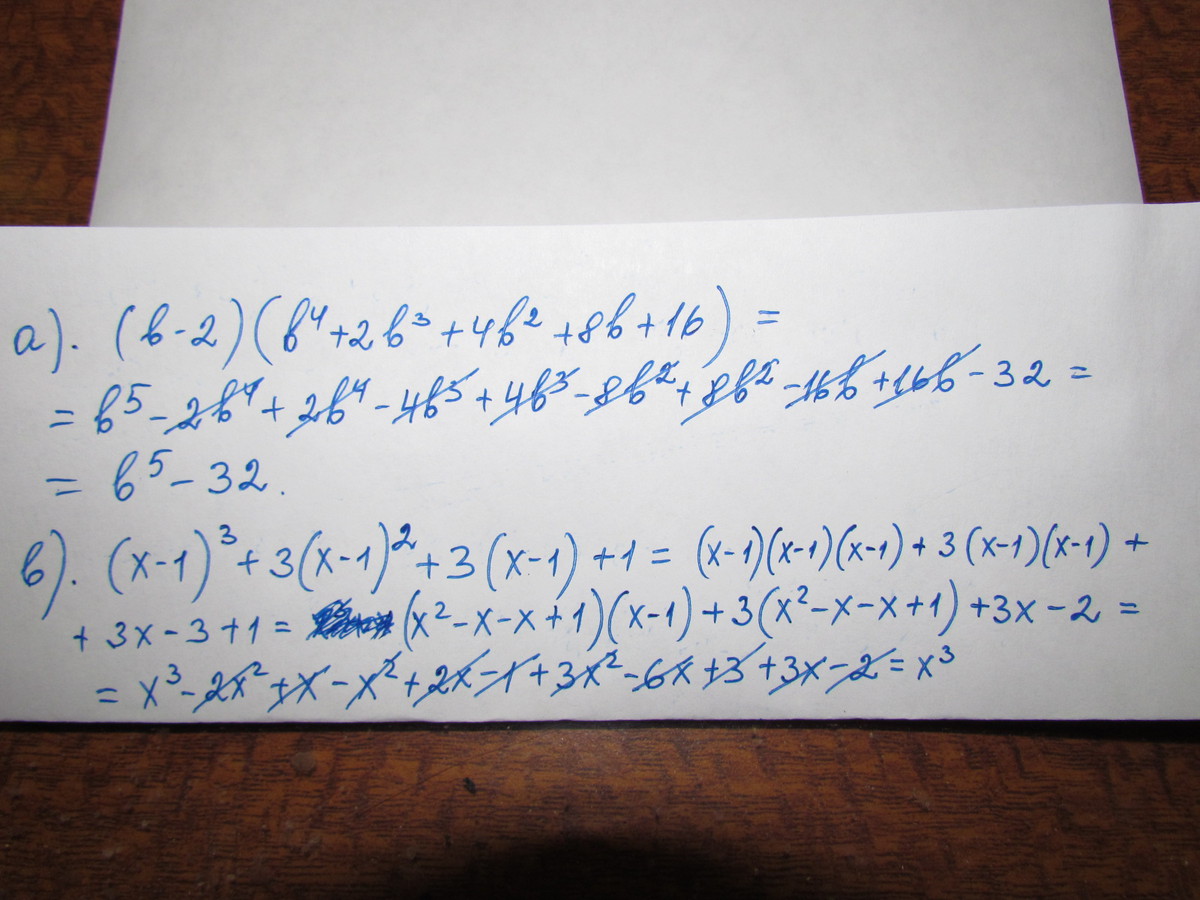 а). (b-2)(b⁴+2b³+4b²+8b+16) =
= b⁵-2b⁴+2b⁴-4b³+4b³-8b²+8b²-16b+16b-32 =
= b⁵-32.
в). (x-1)³+3(x-1)²+3(x-1)+1= (x-1)(x-1)(x-1)+3(x-1)(x-1)+
+3x-3+1= (x²-x-x+1)(x-1)+3(x²-x-x+1)+3x-2=
= x³-2x²+x-x²+2x-1+3x²-6x+3+3x-2=x³